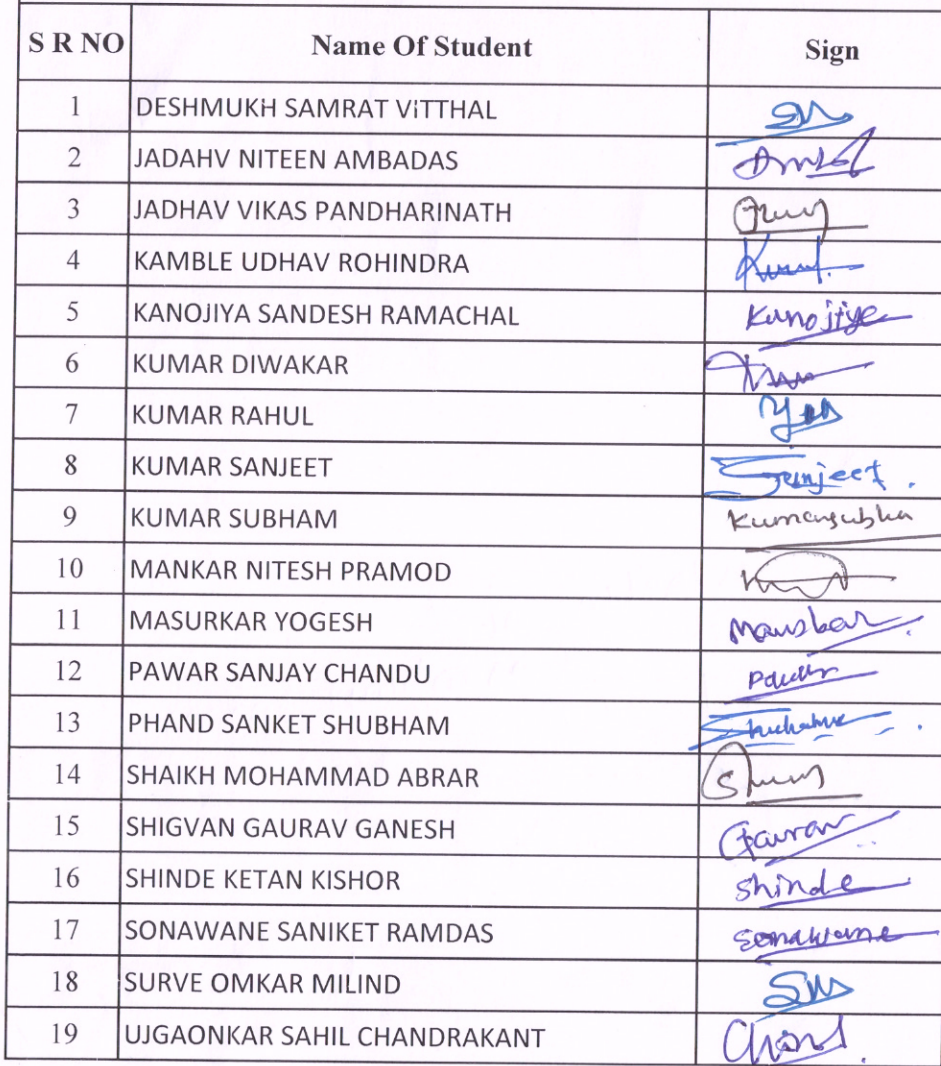 S R NO Name Of Student Sign
1 DESHMUKH SAMRAT VITTHAL
2 JADAHV NITEEN AMBADAS
3 JADHAV VIKAS PANDHARINATH
4 KAMBLE UDHAV ROHINDRA
5 KANOJIYA SANDESH RAMACHAL Kanojiye
6 KUMAR DIWAKAR
7 KUMAR RAHUL
8 KUMAR SANJEET Sanjeet.
9 KUMAR SUBHAM Kumarsubha
10 MANKAR NITESH PRAMOD
11 MASURKAR YOGESH
12 PAWAR SANJAY CHANDU Pawar
13 PHAND SANKET SHUBHAM
14 SHAIKH MOHAMMAD ABRAR
15 SHIGVAN GAURAV GANESH Gaurav
16 SHINDE KETAN KISHOR Shinde
17 SONAWANE SANIKET RAMDAS Sonawane
18 SURVE OMKAR MILIND
19 UJGAONKAR SAHIL CHANDRAKANT Chand.